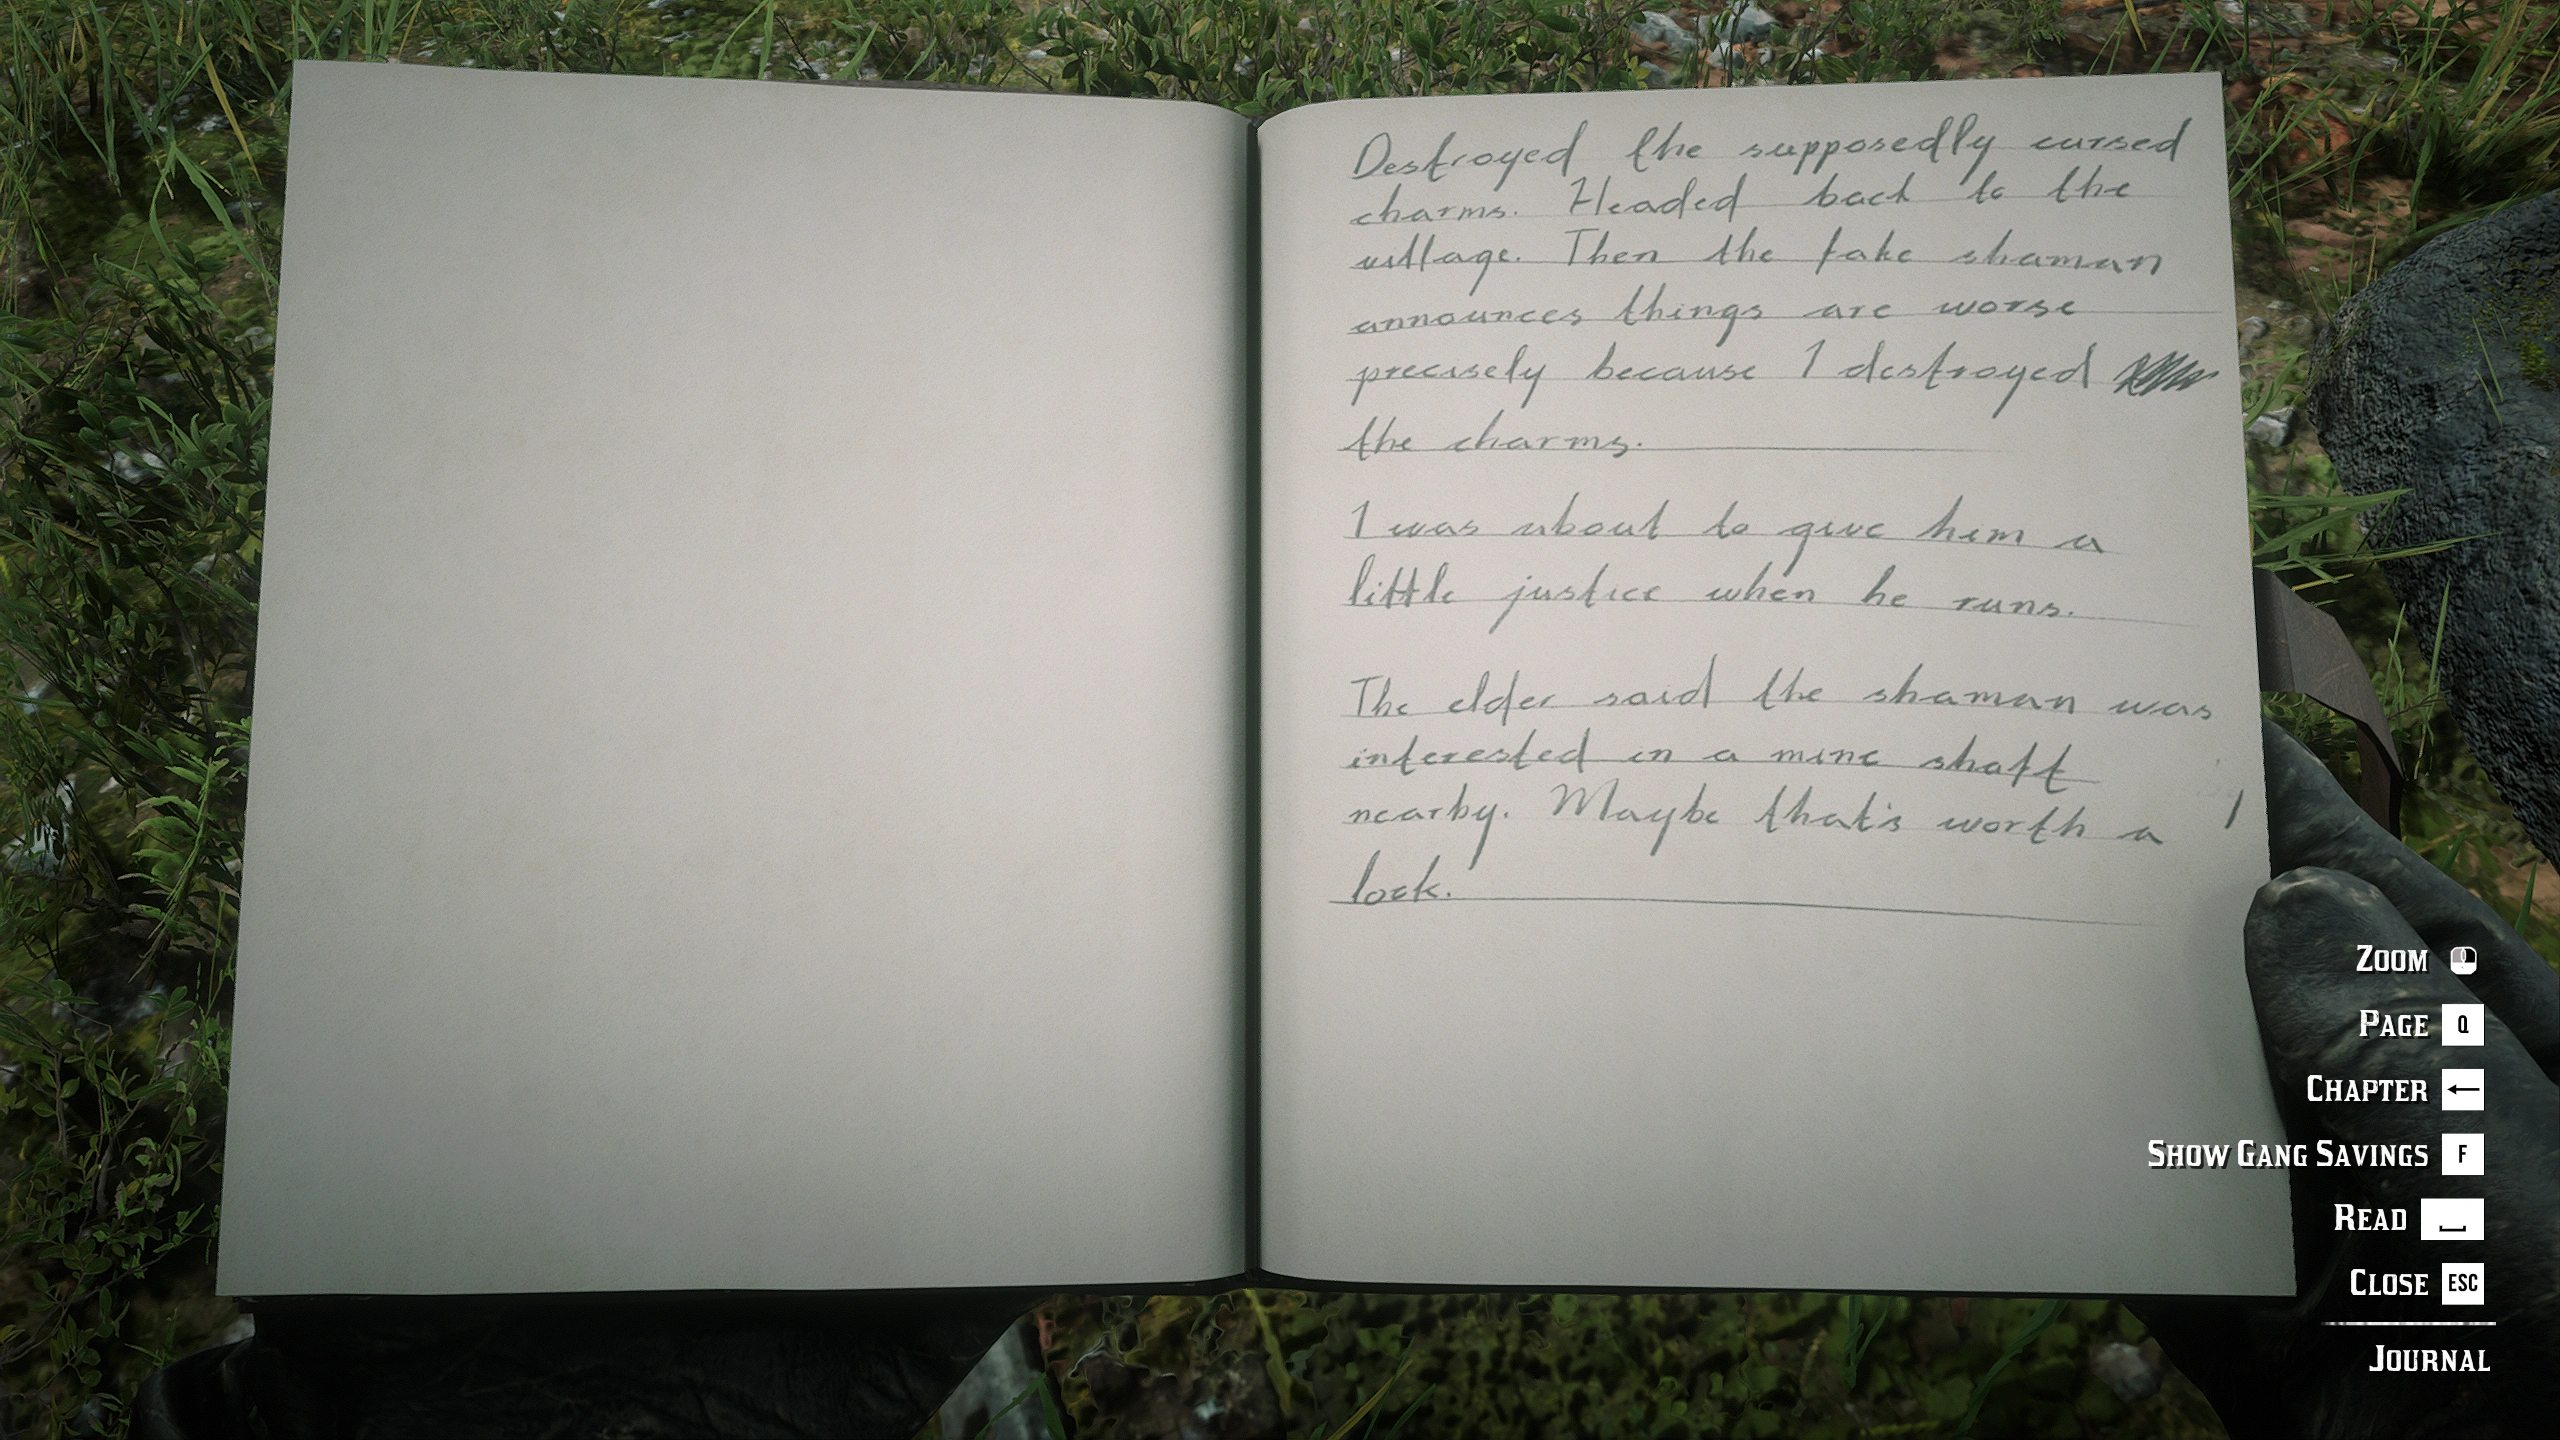 Destroyed the supposedly cursed
charms. Headed back to the
village. Then the fake shaman
announces things are worse
precisely because I destroyed
the charms.
I was about to give him a
little justice when he runs.
The elder said the shaman was
interested in a mine shaft
nearby. Maybe that's worth a
look.
ZOOM
PAGE Q
CHAPTER ←
SHOW GANG SAVINGS F
READ
CLOSE ESC
JOURNAL